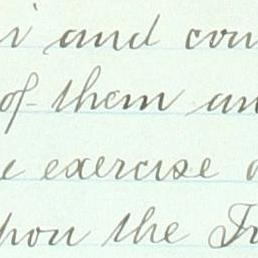 i and con
of them an
e exercise o
upon the Tr